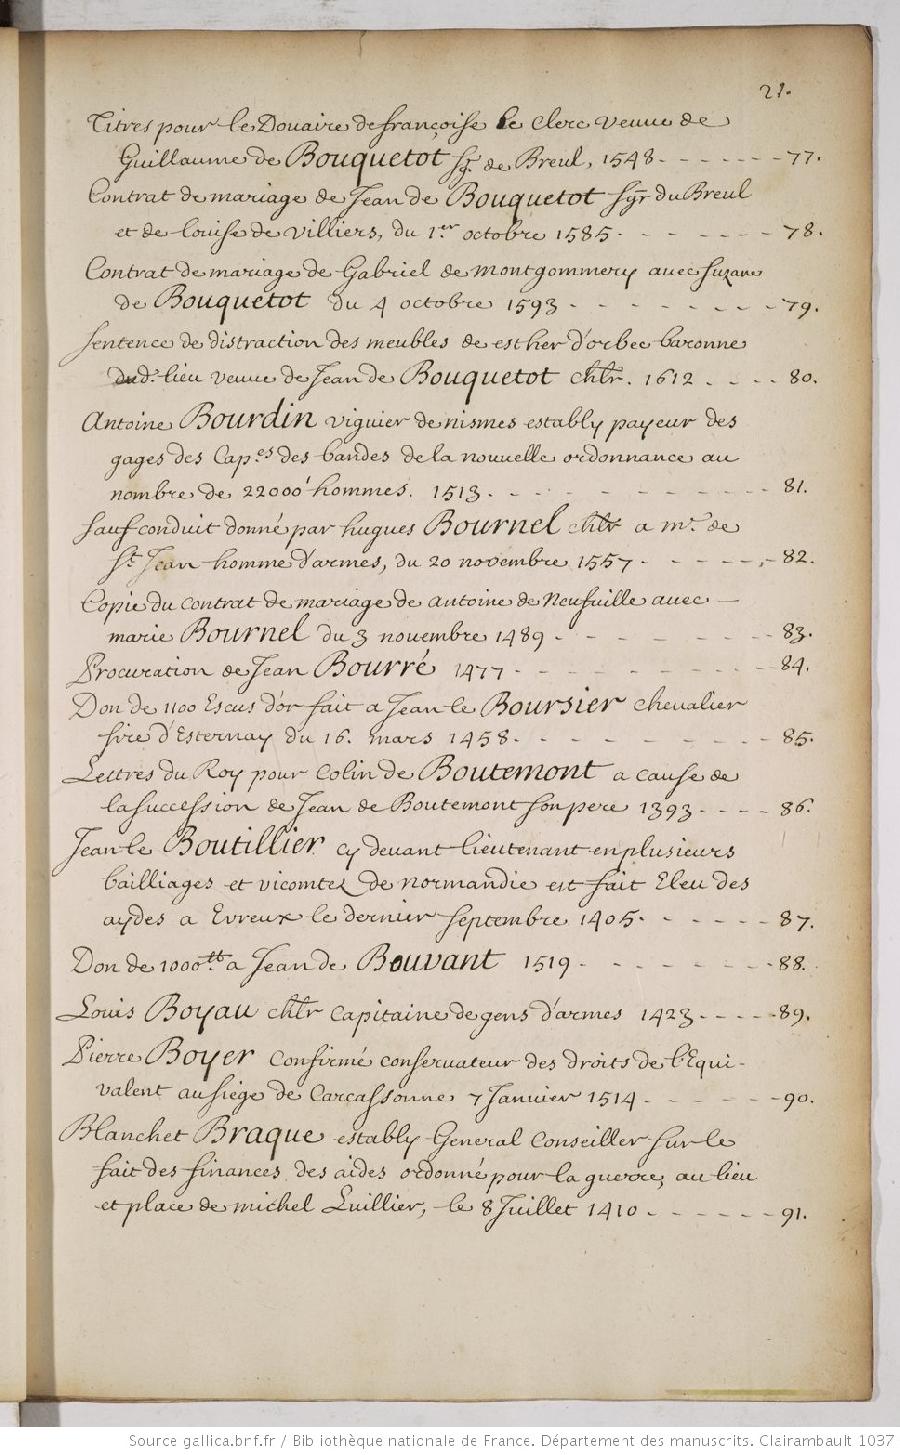 21.
Titres pour le Douaire de françoise le Clerc veuue de
Guillaume de Bouquetot sgr. de Breul, 1548 - - - - - - - 77.
Contrat de mariage de Jean de Bouquetot sgr du Breul
et de Louise de Villiers, du 1.er octobre 1585 - - - - - - - 78.
Contrat de mariage de Gabriel de montgommery avec suzane
de Bouquetot du 4 octobre 1593 - - - - - - - - 79.
Sentence de distraction des meubles de esther d'orbec baronne
dud. lieu veuue de Jean de Bouquetot chlr. 1612 - - - - 80.
Antoine Bourdin viguier de nismes estably payeur des
gages des Cap.es des bandes de la nouuelle ordonnance au
nombre de 22000 hommes. 1513 - - - - - - - - - - - 81.
Sauf conduit donné par hugues Bournel chlr a mr. de
St. Jean homme d'armes, du 20 novembre 1557 - - - - - - 82.
Copie du contrat de mariage de antoine de Neufuille avec
marie Bournel du 3 novembre 1489 - - - - - - - - 83.
Procuration de Jean Bourré 1477 - - - - - - - - - - 84.
Don de 1100 Escus d'or fait a Jean le Boursier chevalier
sire d'Esternay du 16. mars 1458 - - - - - - - - - - 85.
Lettres du Roy pour Colin de Boutemont a cause de
la succession de Jean de Boutemont son pere 1393 - - - - 86.
Jean le Boutillier cy devant lieutenant en plusieurs
bailliages et vicomtez de normandie est fait Eleu des
aydes a Evreux le dernier septembre 1405 - - - - - - 87.
Don de 1000.tt a Jean de Bouvant 1519 - - - - - - - - 88.
Louis Boyau chlr capitaine de gens d'armes 1423 - - - - - 89.
Pierre Boyer confirmé conservateur des droits de l'Equi-
valent au siége de Carcassonne 7 Janvier 1514 - - - - - - 90.
Blanchet Braque estably General Conseiller sur le
fait des finances des aides ordonné pour la guerre, au lieu
et place de michel Luillier, le 8 Juillet 1410 - - - - - - - 91.
Source gallica.bnf.fr / Bibliothèque nationale de France. Département des manuscrits. Clairambault 1037